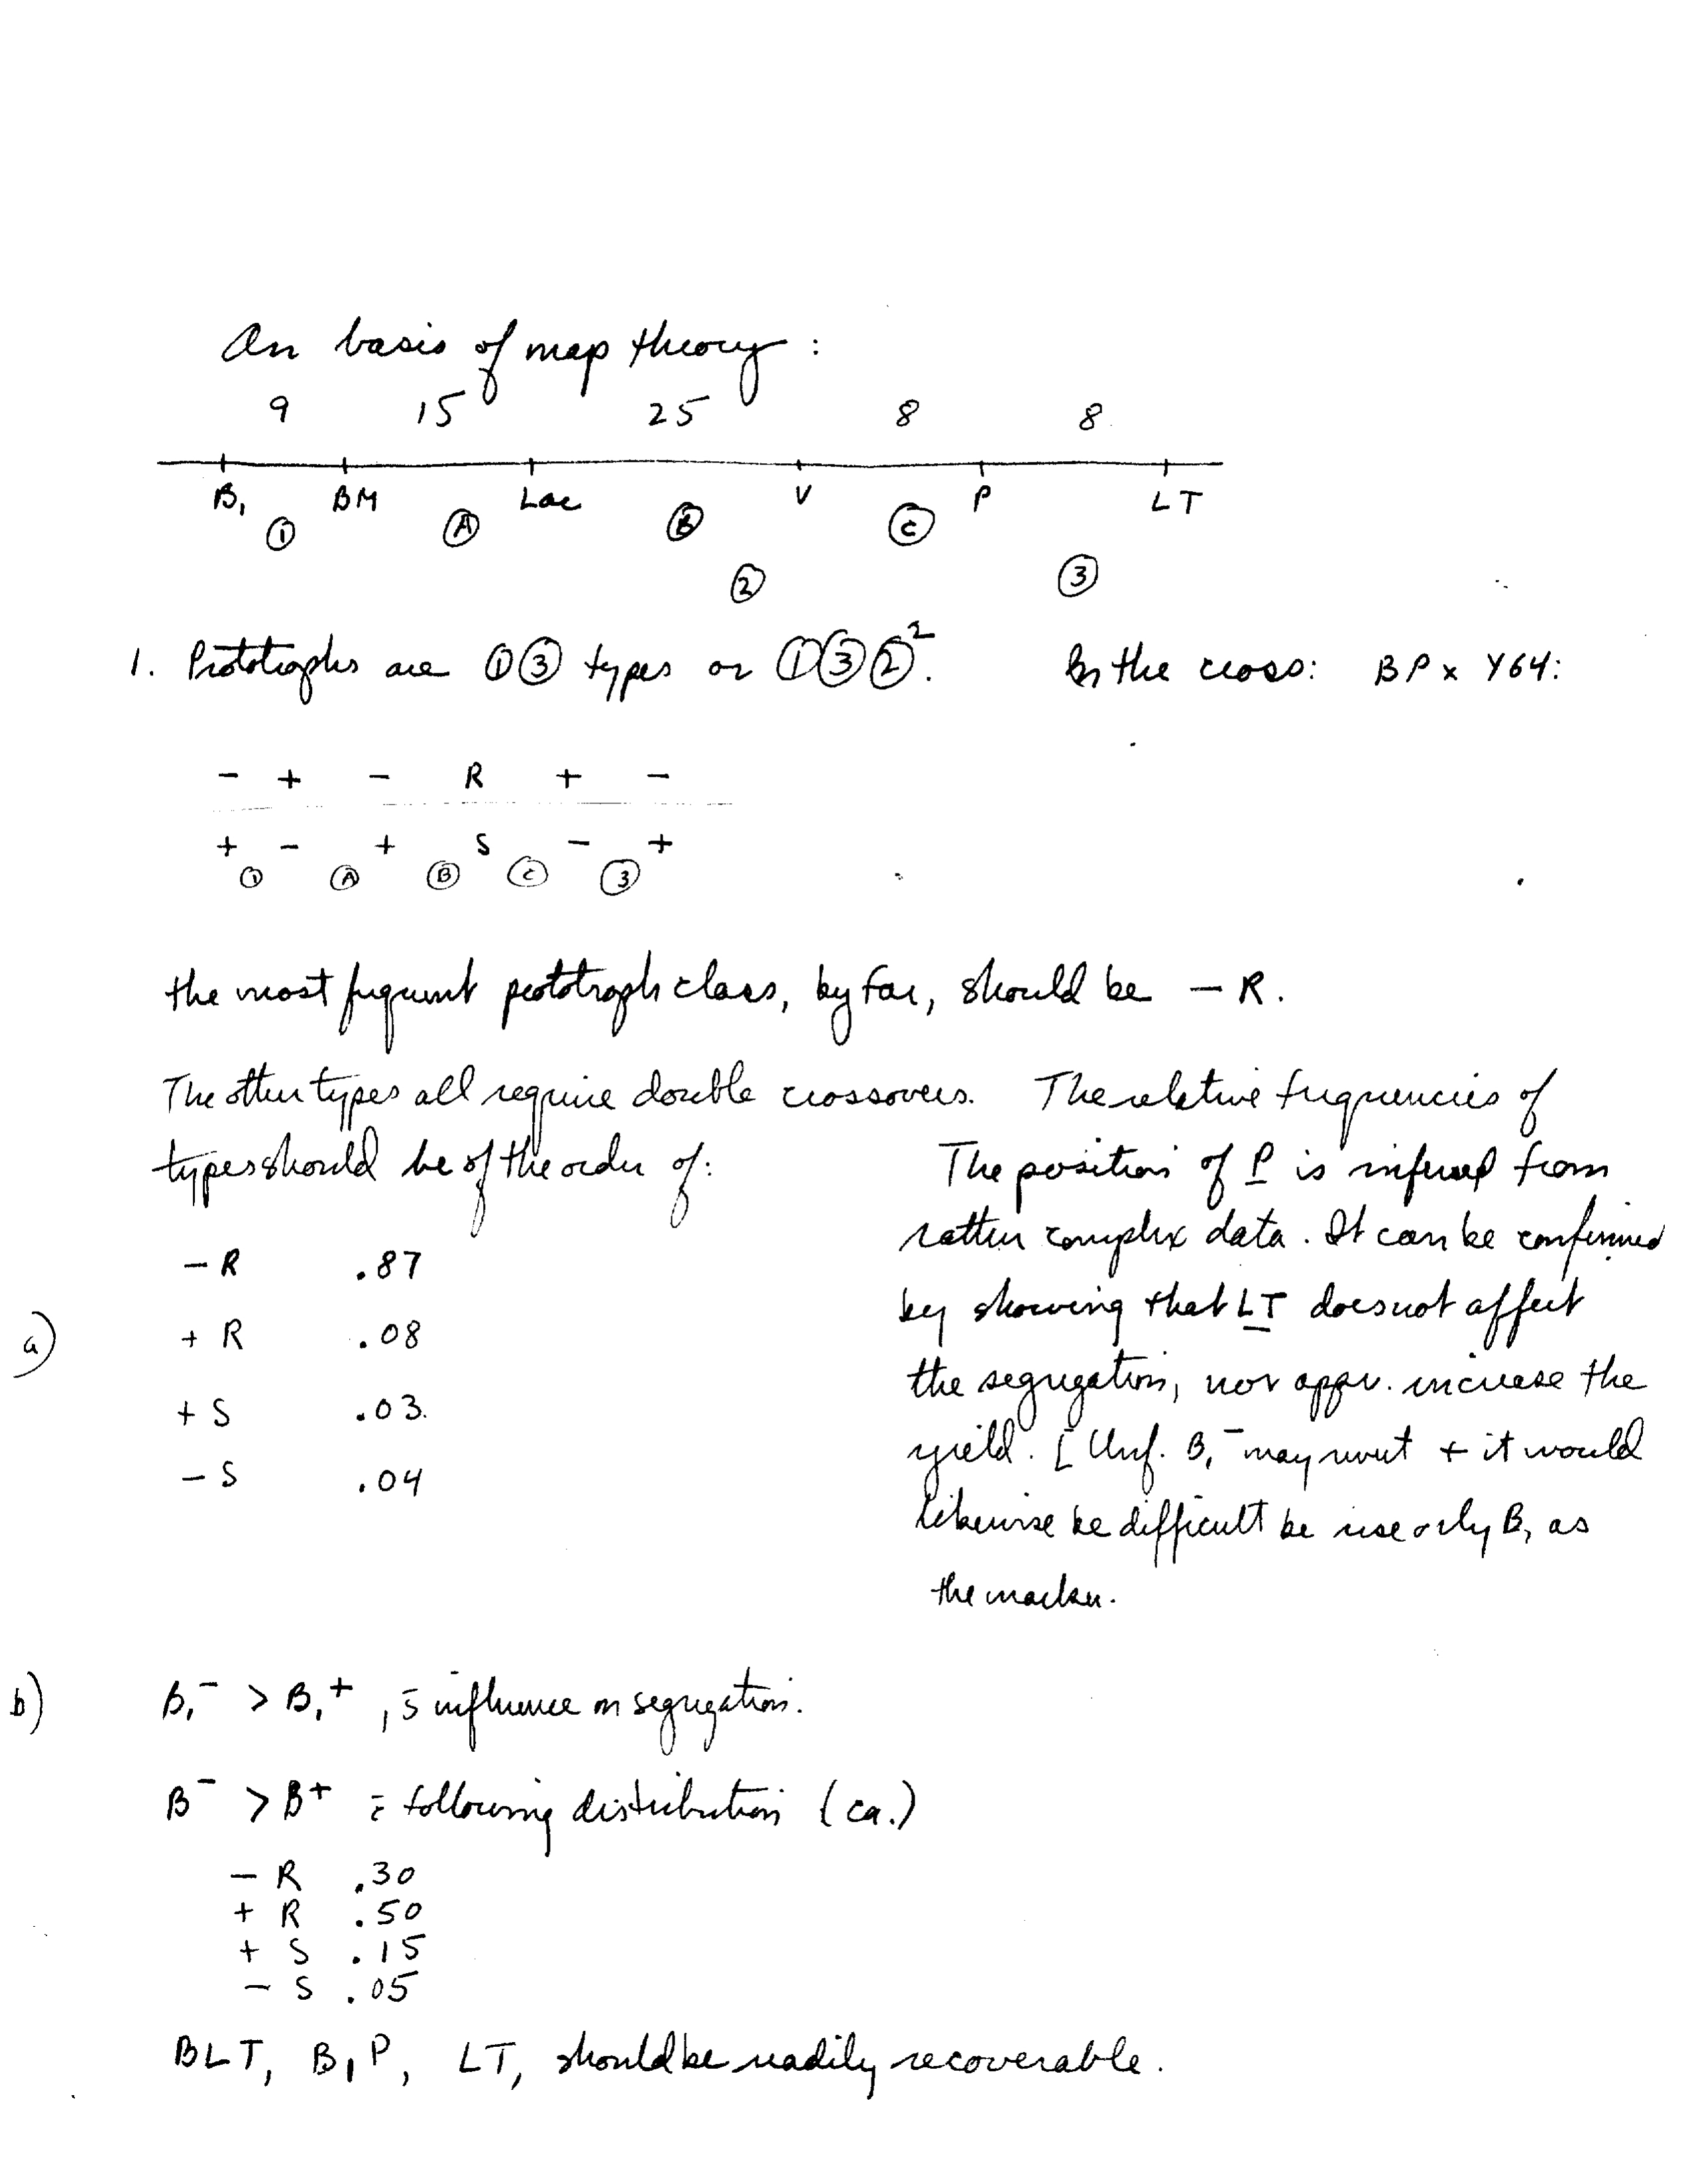 On basis of map theory :
9 15 25 8 8
B₁ BM Lac V P LT
① Ⓐ Ⓑ Ⓒ
② ③
1. Prototrophs are ①③ types or ①③②². In the cross: BP x Y64:
- + - R + -
+ - + S - +
① Ⓐ Ⓑ Ⓒ ③
the most frequent prototroph class, by far, should be - R.
The other types all require double crossovers. The relative frequencies of
types should be of the order of:
- R .87
a) + R .08
+ S .03.
- S .04
The position of P is inferred from
rather complex data. It can be confirmed
by showing that LT does not affect
the segregation, nor appr. increase the
yield. [ Unf. B₁⁻ may revert + it would
likewise be difficult be use only B₁ as
the marker.
b) B₁⁻ > B₁⁺, s̄ influence on segregation.
B⁻ > B⁺ c̄ following distribution (ca.)
- R .30
+ R .50
+ S .15
- S .05
BLT, B₁P, LT, should be readily recoverable.